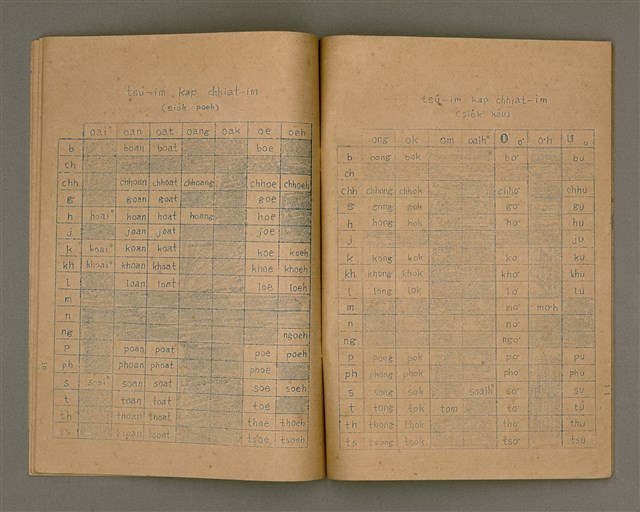 tsú-im kap chhiat-im
(sio̍k poeh)
oaiⁿ oan oat oang oak oe oeh
b boan boat boe
ch
chh chhoan chhoat chhoang chhoe chhoeh
g goan goat goe
h hoaiⁿ hoan hoat hoang hoe
j joan joat joe
k koaiⁿ koan koat koe koeh
kh khoaiⁿ khoan khoat khoe khoeh
l loan loat loe loeh
m
n
ng ngoeh
p poan poat poe poeh
ph phoan phoat phoe
s soaiⁿ soan soat soe soeh
t toan toat toe
th thoan thoat thoe thoeh
ts tsoan tsoat tsoe tsoeh
10
tsú-im kap chhiat-im
(sio̍k káu)
ong ok om oaihⁿ O͘ o͘ o͘h U u
b bong bok bo͘ bu
ch
chh chhong chhok chho͘ chhu
g gong gok go͘ gu
h hong hok ho͘ hu
j ju
k kong kok ko͘ ku
kh khong khok kho͘ khu
l long lok lo͘ lu
m mo͘ mo͘h
n no͘
ng ngo͘
p pong pok po͘ pu
ph phong phok pho͘ phu
s song sok soaihⁿ so͘ su
t tong tok tom to͘ tu
th thong thok tho͘ thu
ts tsong tsok tso͘ tsu